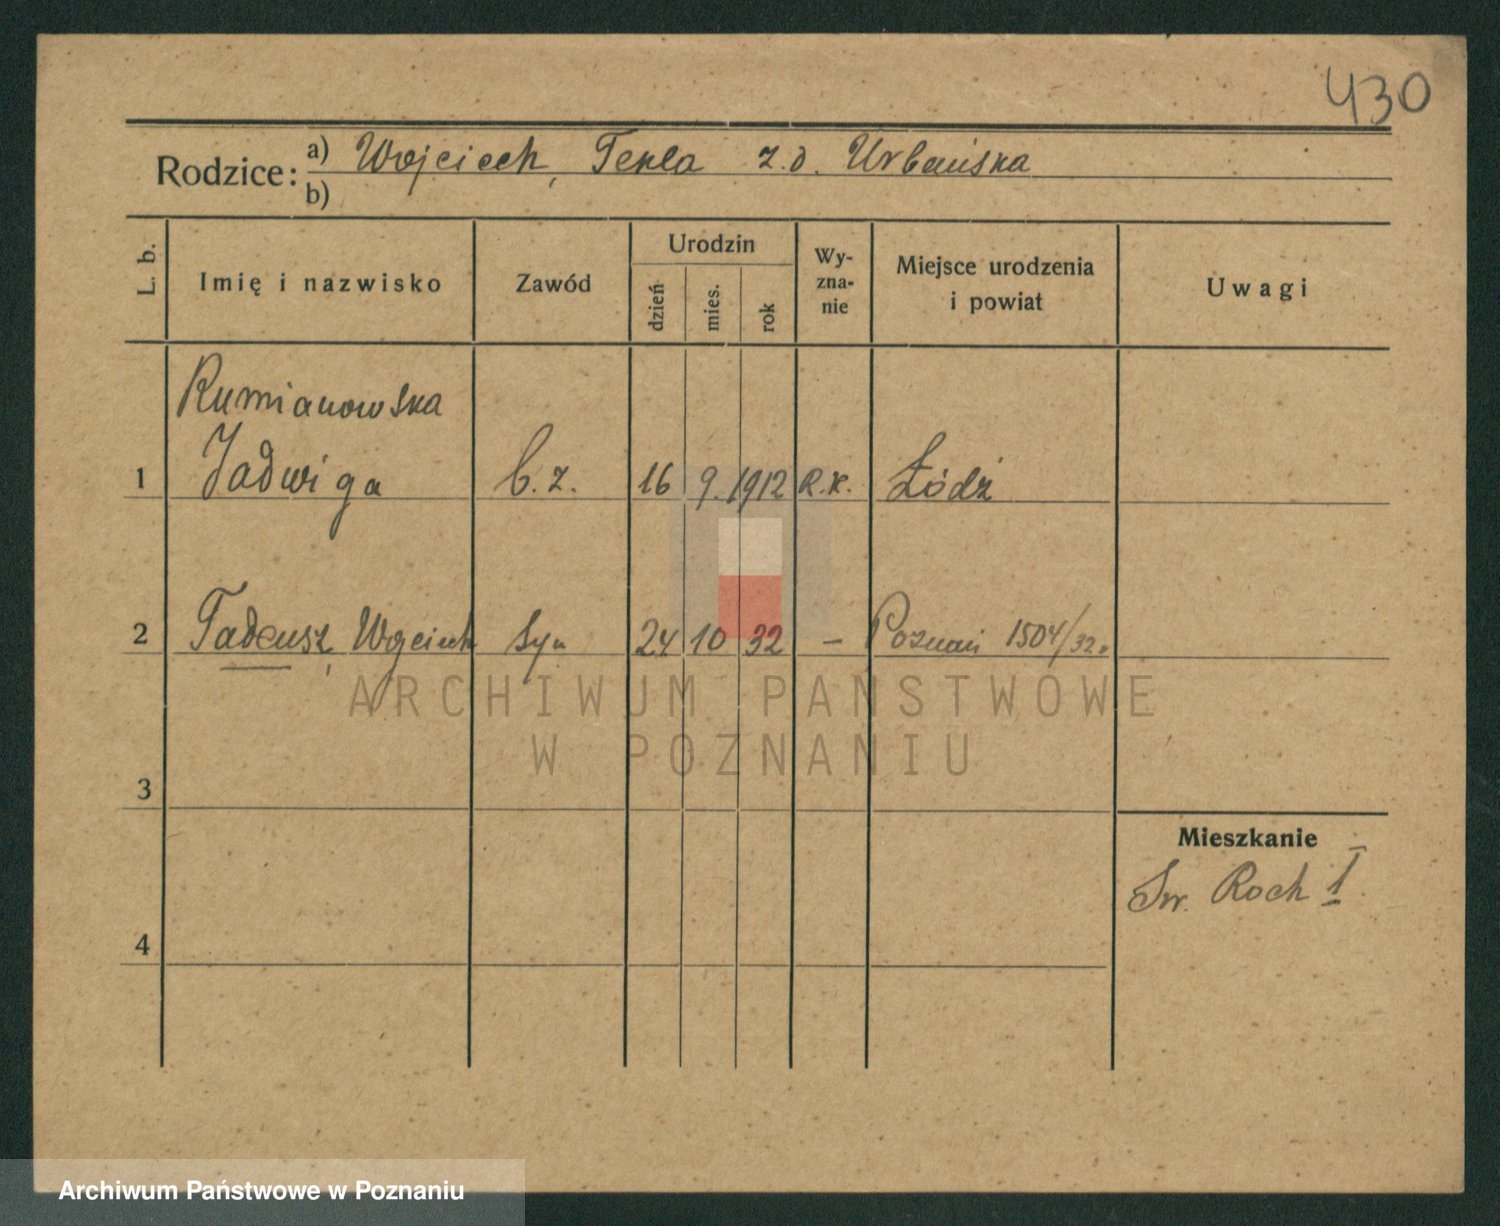 430
Rodzice: a) Wojciech, Tekla z.d. Urbańska
b)
L. b.
Imię i nazwisko
Zawód
Urodzin
dzień
mies.
rok
Wy-
zna-
nie
Miejsce urodzenia
i powiat
Uwagi
Rumianowska
1 Jadwiga b. z. 16 9. 1912 R.K. Łódź
2 Tadeusz, Wojciech syn 24 10 32 – Poznań 1504/32.
ARCHIWUM PAŃSTWOWE
W POZNANIU
3
Mieszkanie
Św. Roch I
4
Archiwum Państwowe w Poznaniu